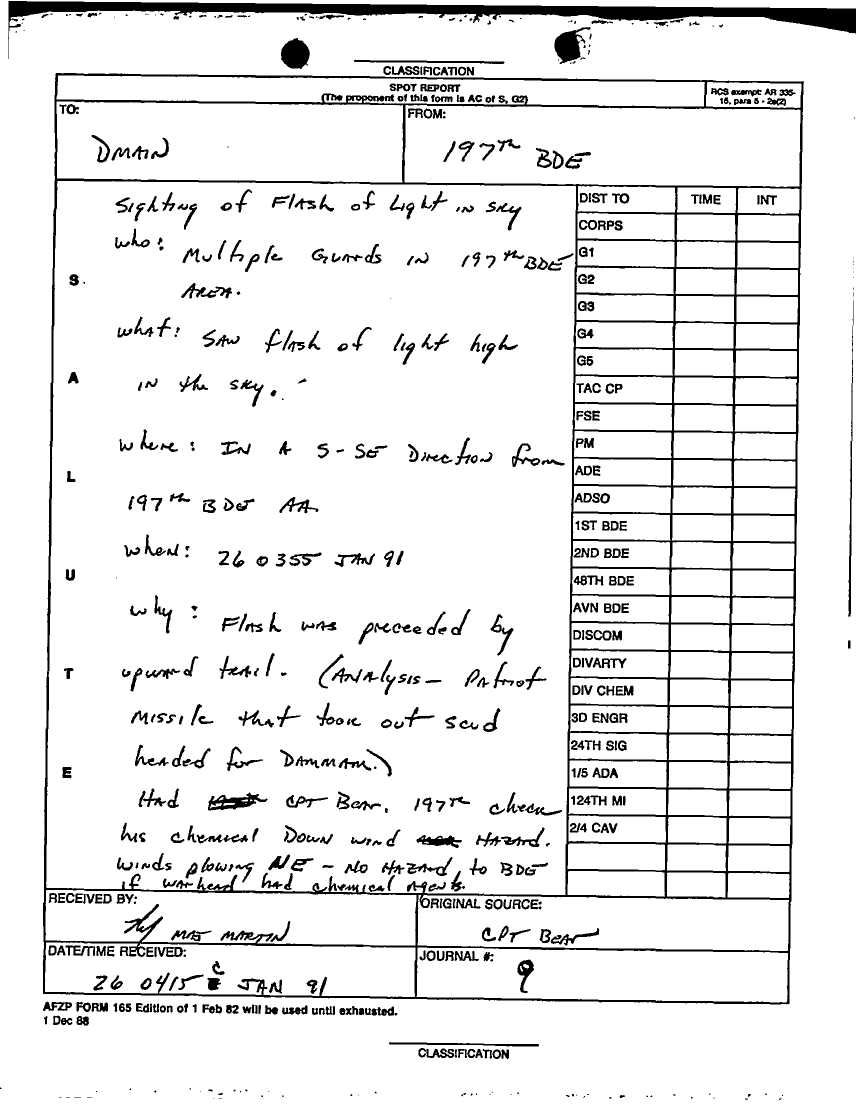 CLASSIFICATION
SPOT REPORT
(The proponent of this form is AC of S, G2)
RCS exempt: AR 335-
15, para 5 - 2e(2)
TO:
DMAIN
FROM:
197th BDE
Sighting of Flash of Light in sky
who: Multiple Guards in 197th BDE
Area.
what: Saw flash of light high
in the sky.
where: In A S-SE Direction from
197th BDE AA.
when: 26 0355 JAN 91
why: Flash was preceeded by
upward trail. (Analysis - Patriot
Missile that took out scud
headed for Dammam.)
Had CPT Bear, 197th check
his chemical Down wind Hazard.
Winds plowing NE - No Hazard, to BDE
if warhead had chemical agents.
S
A
L
U
T
E
DIST TO TIME INT
CORPS
G1
G2
G3
G4
G5
TAC CP
FSE
PM
ADE
ADSO
1ST BDE
2ND BDE
48TH BDE
AVN BDE
DISCOM
DIVARTY
DIV CHEM
3D ENGR
24TH SIG
1/5 ADA
124TH MI
2/4 CAV
RECEIVED BY:
MAJ MARTIN
ORIGINAL SOURCE:
CPT Bear
DATE/TIME RECEIVED:
26 0415 C JAN 91
JOURNAL #:
9
AFZP FORM 165 Edition of 1 Feb 82 will be used until exhausted.
1 Dec 88
CLASSIFICATION